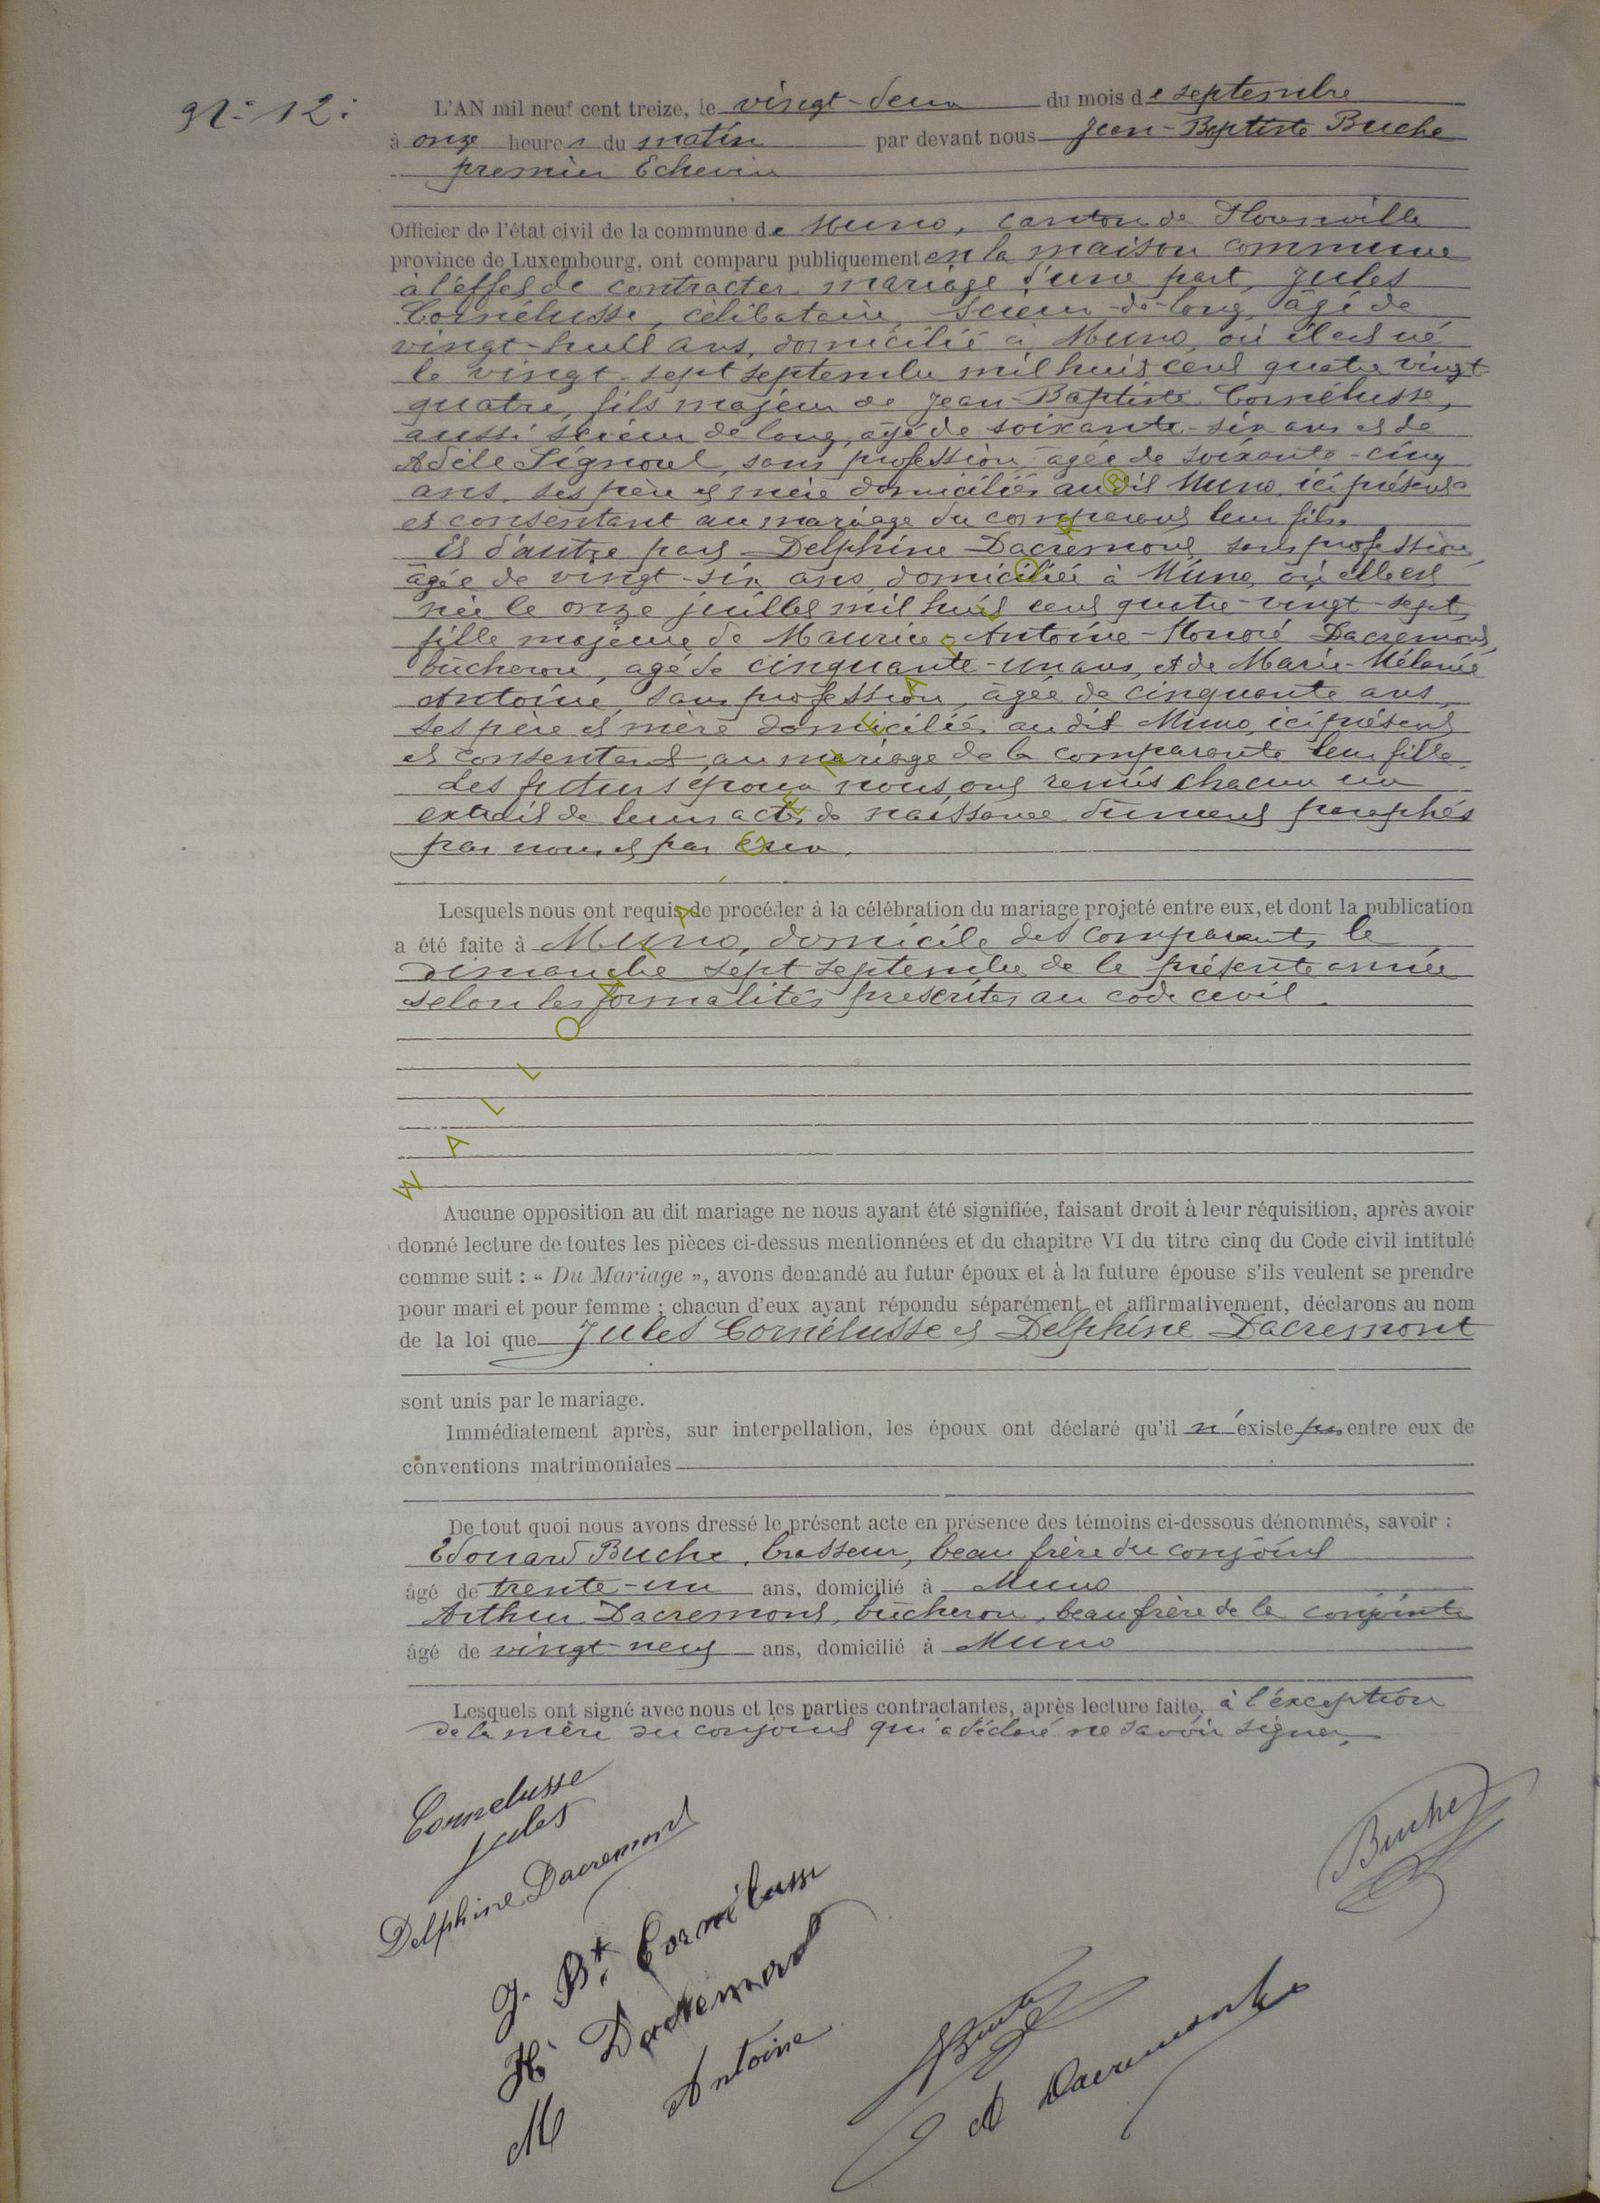 N° 12.
L'AN mil neuf cent treize, le vingt-deux du mois de septembre
à onze heures du matin par devant nous Jean-Baptiste Buche
premier Echevin
Officier de l'état civil de la commune de Muno, canton de Florenville
province de Luxembourg, ont comparu publiquement en la maison commune
à l'effet de contracter mariage d'une part, Jules
Cornélusse, célibataire, scieur-de-long, âgé de
vingt-huit ans, domicilié à Muno, où il est né
le vingt-sept septembre mil huit cent quatre vingt-
quatre, fils majeur de Jean-Baptiste Cornélusse,
aussi scieur de long, âgé de soixante-six ans et de
Adèle Signorel, sans profession, agée de soixante-cinq
ans, ses père et mère domiciliés au dit Muno, ici présents
et consentant au mariage du comparant leur fils.
Et d'autre part Delphine Dacremont, sans profession,
âgée de vingt-six ans, domiciliée à Muno, où elle est
née le onze juillet mil huit cent quatre-vingt-sept,
fille majeure de Maurice-Antoine-Honoré Dacremont,
bûcheron, agé de cinquante-un ans, et de Marie-Mélanie
Antoine, sans profession, âgée de cinquante ans,
ses père et mère domiciliés au dit Muno, ici présents
et consentant au mariage de la comparante leur fille.
Les futurs époux nous ont remis chacun un
extrait de leurs actes de naissance dûment paraphés
par nous et par eux.
Lesquels nous ont requis de procéder à la célébration du mariage projeté entre eux, et dont la publication
a été faite à Muno, domicile des comparants, le
dimanche sept septembre de la présente année
selon les formalités prescrites au code civil.
Aucune opposition au dit mariage ne nous ayant été signifiée, faisant droit à leur réquisition, après avoir
donné lecture de toutes les pièces ci-dessus mentionnées et du chapitre VI du titre cinq du Code civil intitulé
comme suit : « Du Mariage », avons demandé au futur époux et à la future épouse s'ils veulent se prendre
pour mari et pour femme ; chacun d'eux ayant répondu séparément et affirmativement, déclarons au nom
de la loi que Jules Cornélusse et Delphine Dacremont
sont unis par le mariage.
Immédiatement après, sur interpellation, les époux ont déclaré qu'il n'existe pas entre eux de
conventions matrimoniales
De tout quoi nous avons dressé le présent acte en présence des témoins ci-dessous dénommés, savoir :
Edouard Buche, brasseur, beau frère du conjoint
âgé de trente-un ans, domicilié à Muno
Arthur Dacremont, bûcheron, beau frère de la conjointe
âgé de vingt-neuf ans, domicilié à Muno
Lesquels ont signé avec nous et les parties contractantes, après lecture faite, à l'exception
de la mère du conjoint qui a déclaré ne savoir signer.
Cornelusse
Jules
Buche
Delphine Dacremont
J. Bte Cornélusse
H Dacremont
M Antoine
Buche
A Dacremont
WALLONIA - GENEALOPRO ®